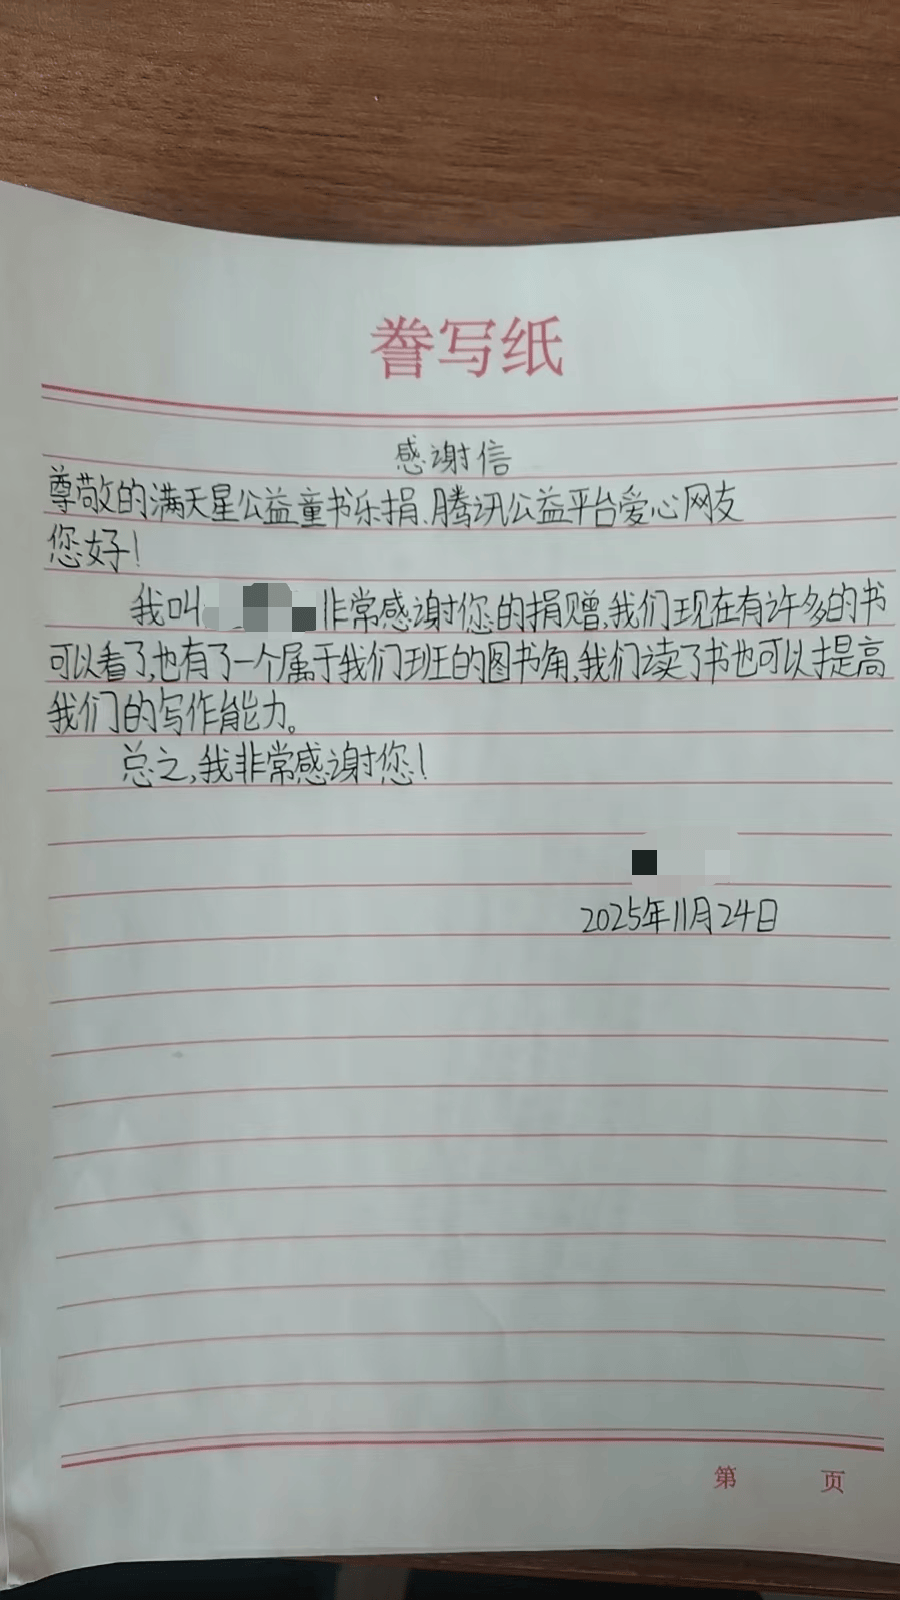 誊写纸
感谢信
尊敬的满天星公益童书乐捐、腾讯公益平台爱心网友
您好!
我叫 非常感谢您的捐赠,我们现在有许多的书
可以看了,也有了一个属于我们班的图书角,我们读了书也可以提高
我们的写作能力。
总之,我非常感谢您!
2025年11月24日
第 页